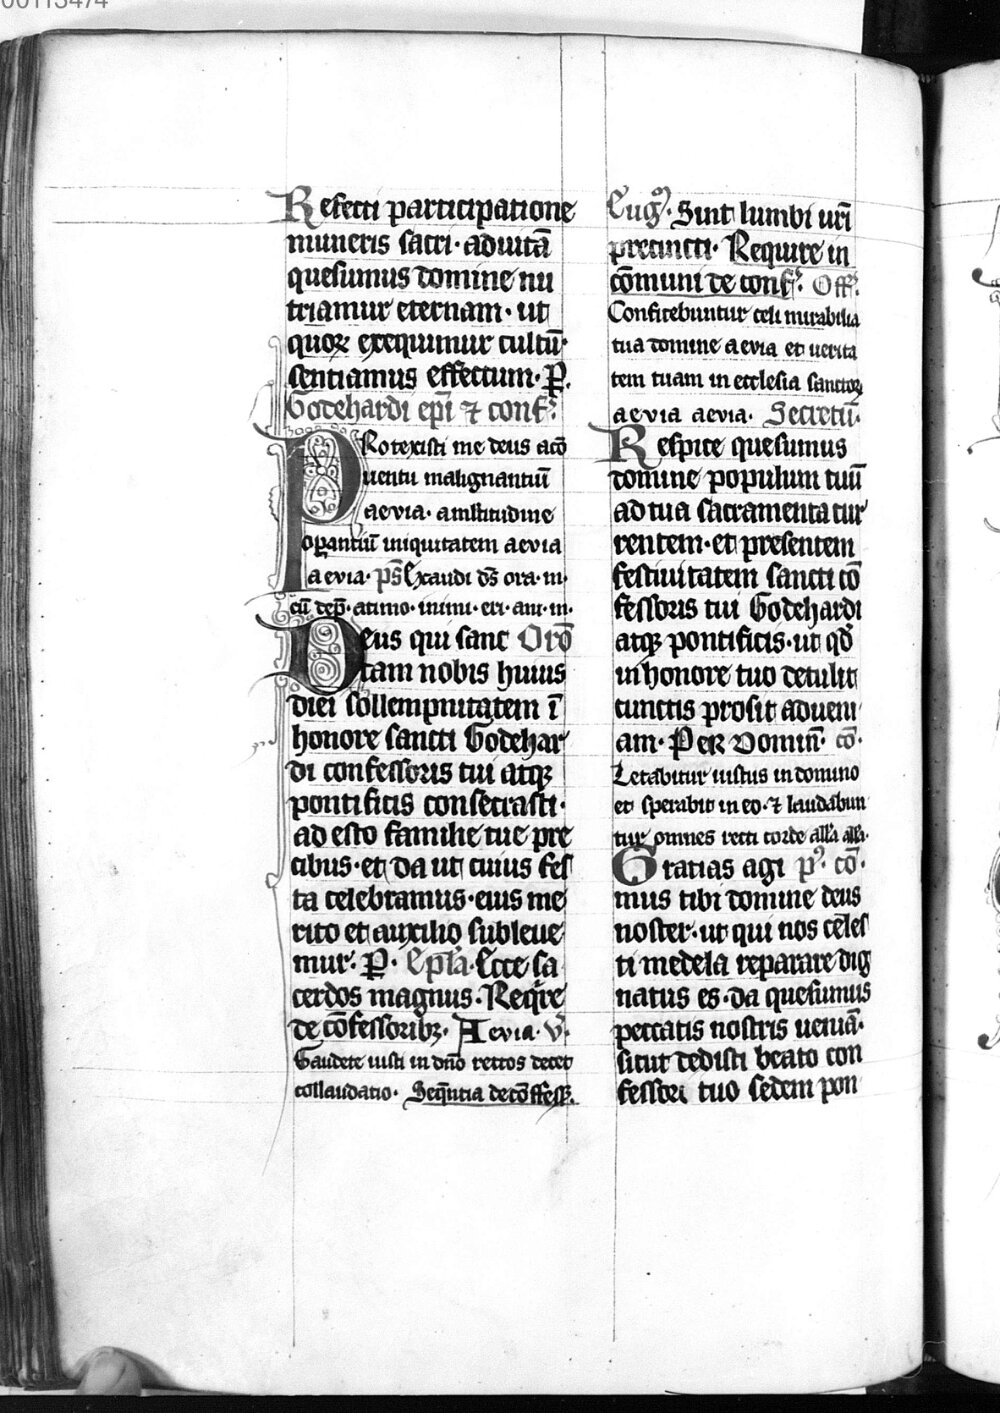 00113474
Refecti participatione
muneris sacri· ad uitā
quesumus domine nu
triamur eternam· ut
quoꝝ exequimur cultū·
sentiamus effectum· P̄.
Godehardi ep̄i ⁊ conf.
PRotexisti me deus a cō
uentu malignantiū
aevia· a multitudine
opantiū iniquitatem aevia
aevia· p̄s Exaudi d̄s ora· m·
cū dep̄· a timo· inimi· eri· am· m·
Deus qui sanc Orō
tam nobis huius
diei sollempnitatem ī
honore sancti Godehar
di confessoris tui atqꝫ
pontificis consecrasti·
ad esto familie tue pre
cibus· et da ut cuius fes
ta celebramus· eius me
rito et auxilio subleue
mur· P̄· Ep̄la· Ecce sa
cerdos magnus· Reqͥre
de cōfessoribꝫ· Aevia· v̄·
Gaudete iusti in dn̄o rectos decet
collaudatio· Seqn̄tia de cōffess.
Eugͫ· Sint lumbi ur̄i
precincti· Require in
cōmuni de conf. Off.
Confitebuntur celi mirabilia
tua domine aevia et uerita
tem tuam in ecclesia sanctoꝝ
aevia aevia· Secretū·
Respice quesumus
domine populum tuū
ad tua sacramenta cur
rentem· et presentem
festiuitatem sancti cō
fessoris tui Godehardi
atqꝫ pontificis· ut qd̄
in honore tuo detulit
cunctis prosit ad ueni
am· Per Domin̄· cō·
Letabitur iustus in domino
et sperabit in eo· ⁊ laudabun
tur omnes recti corde all̄a all̄a·
Gratias agi p̾· cō·
mus tibi domine deus
noster· ut qui nos celes
ti medela reparare dig
natus es· da quesumus
peccatis nostris ueniā·
sicut dedisti beato con
fessori tuo sedem pon